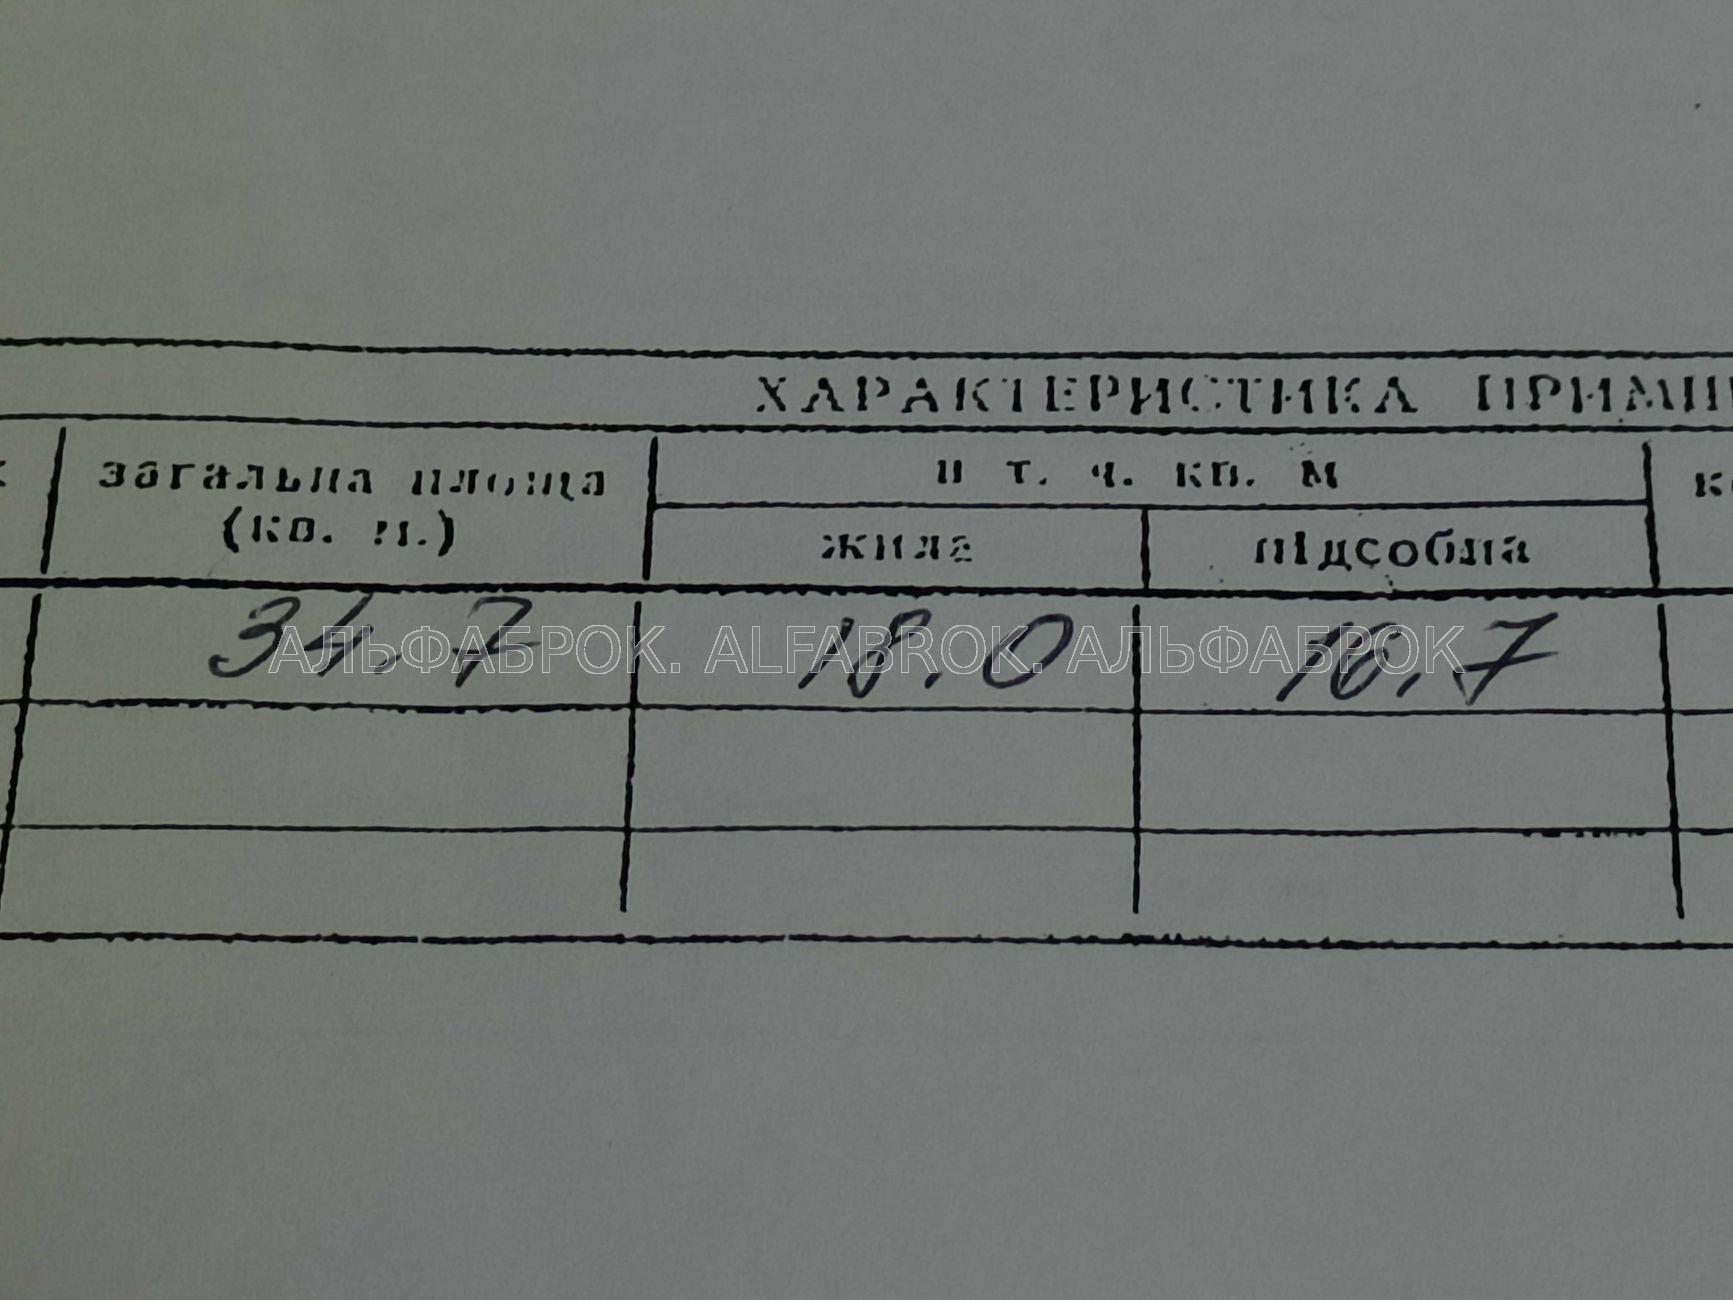 ХАРАКТЕРИСТИКА ПРИМІ
загальна площа
(кв. м.)
в т. ч. кв. м
жила
підсобна
34.7
18.0
16,7
АЛЬФАБРОК. ALFABROK. АЛЬФАБРОК